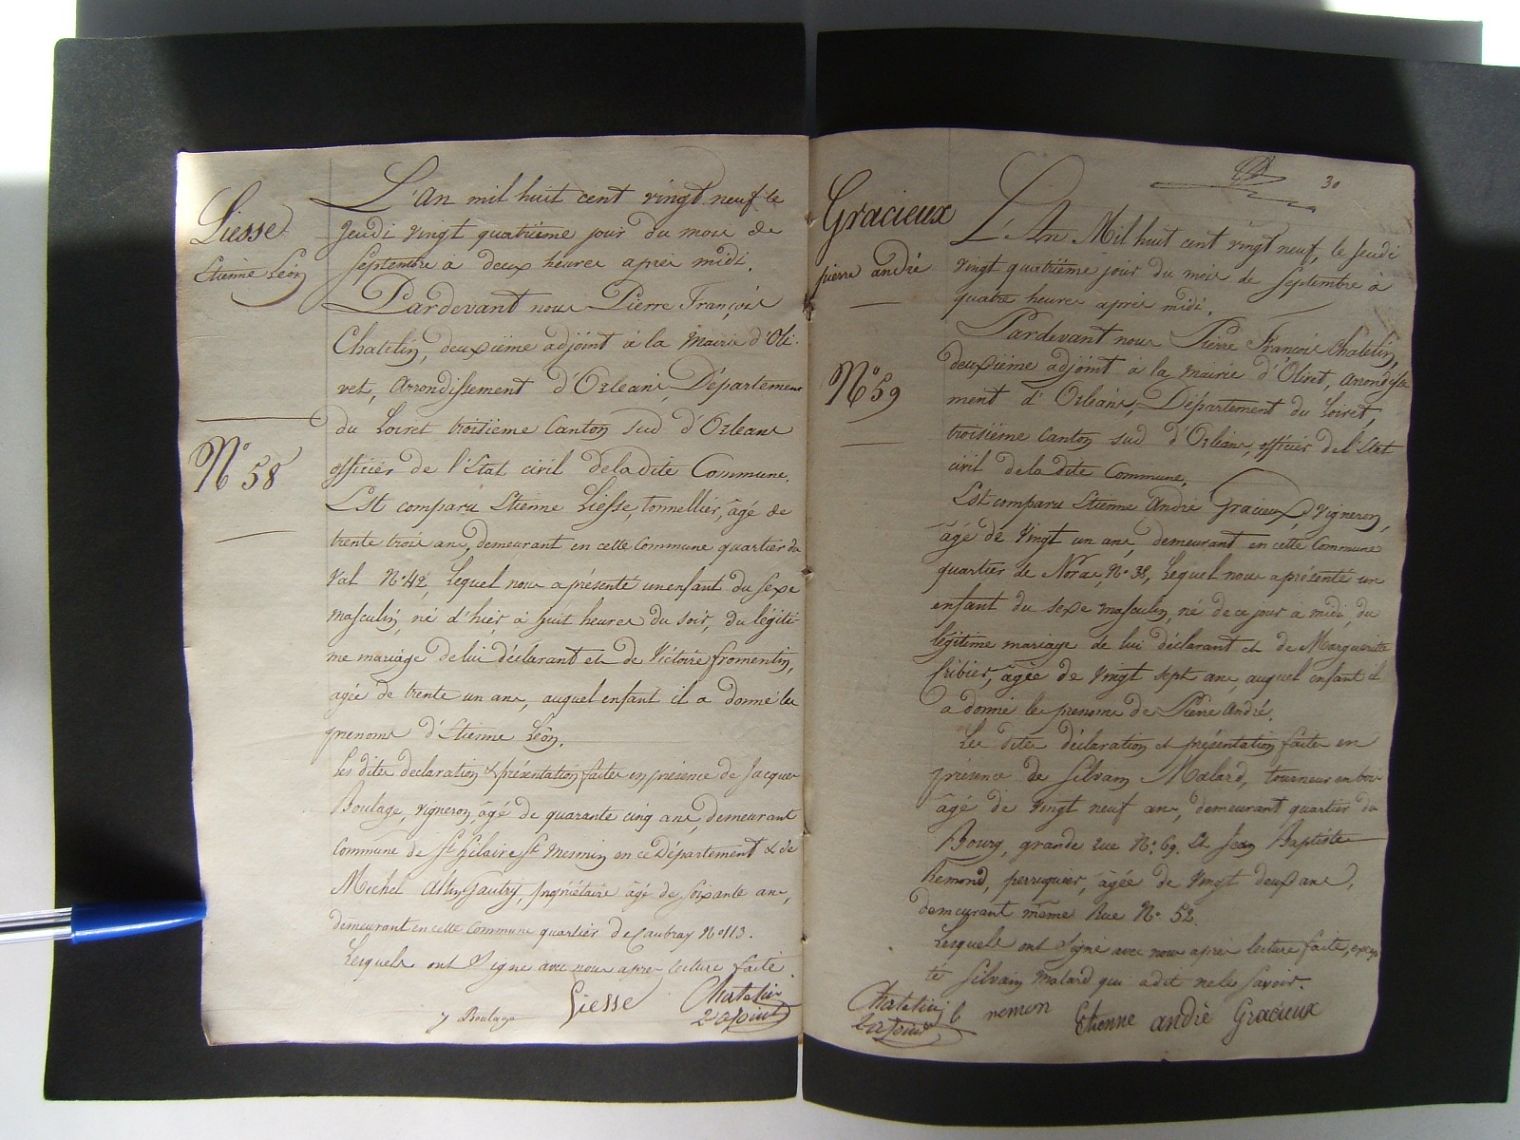 Liesse
Etienne Léon
N° 58
L'an mil huit cent vingt neuf le
jeudi vingt quatrième jour du mois de
septembre à deux heures après midi.
Pardevant nous Pierre François
Chatelin, deuxième adjoint à la Mairie d'Oli-
vet, arrondissement d'Orléans, Département
du Loiret troisième Canton sud d'Orléans
officier de l'Etat civil de la dite Commune.
Est comparu Etienne Liesse, tonnellier, âgé de
trente trois ans, demeurant en cette Commune quartier du
Val N° 42, lequel nous a présenté un enfant du sexe
masculin, né d'hier, à huit heures du soir, du légiti-
me mariage de lui déclarant et de Victoire fromentin,
agée de trente un ans, auquel enfant il a donné les
prenoms d'Etienne Léon.
Les dites declaration et présentation faites en présence de Jacques
Boulage, vigneron, âgé de quarante cinq ans, demeurant
Commune de St hilaire St Mesmin en ce Département & de
Michel Gaubry, propriétaire âgé de soixante ans,
demeurant en cette Commune quartier de Caubray N° 113.
Lesquels ont Signé avec nous après lecture faite.
J Boulage Liesse Chatelin
2e adjoint
30
Gracieux
pierre andré
N° 59
L'An Mil huit cent vingt neuf, le jeudi
vingt quatrième jour du mois de septembre à
quatre heures après midi.
Pardevant nous Pierre François Chatelin,
deuxième adjoint à la mairie d'Olivet, arrondisse
ment d'Orléans, Département du Loiret,
troisième Canton sud d'Orléans, officier de l'Etat
civil de la dite Commune.
Est comparu Etienne André Gracieux, vigneron,
âgé de vingt un ans, demeurant en cette Commune
quartier de Noras, N° 38, lequel nous a présenté un
enfant du sexe masculin, né de ce jour à midi, du
légitime mariage de lui déclarant et de Marguerite
Cribier, âgée de vingt sept ans, auquel enfant il
a donné les prenoms de Pierre André.
Les dites déclaration et présentation faites en
présence de Silvain Malard, tourneur en bois
âgé de vingt neuf ans, demeurant quartier du
Bourg, grande rue N° 69. Et Jean Baptiste
Remond, perruquier, âgée de vingt deux ans,
demeurant même Rue N° 52.
Lesquels ont signé avec nous après lecture faite, excep
té Silvain Malard qui a dit ne le savoir.
Chatelin b remon Etienne andré Gracieux
2e adjoint